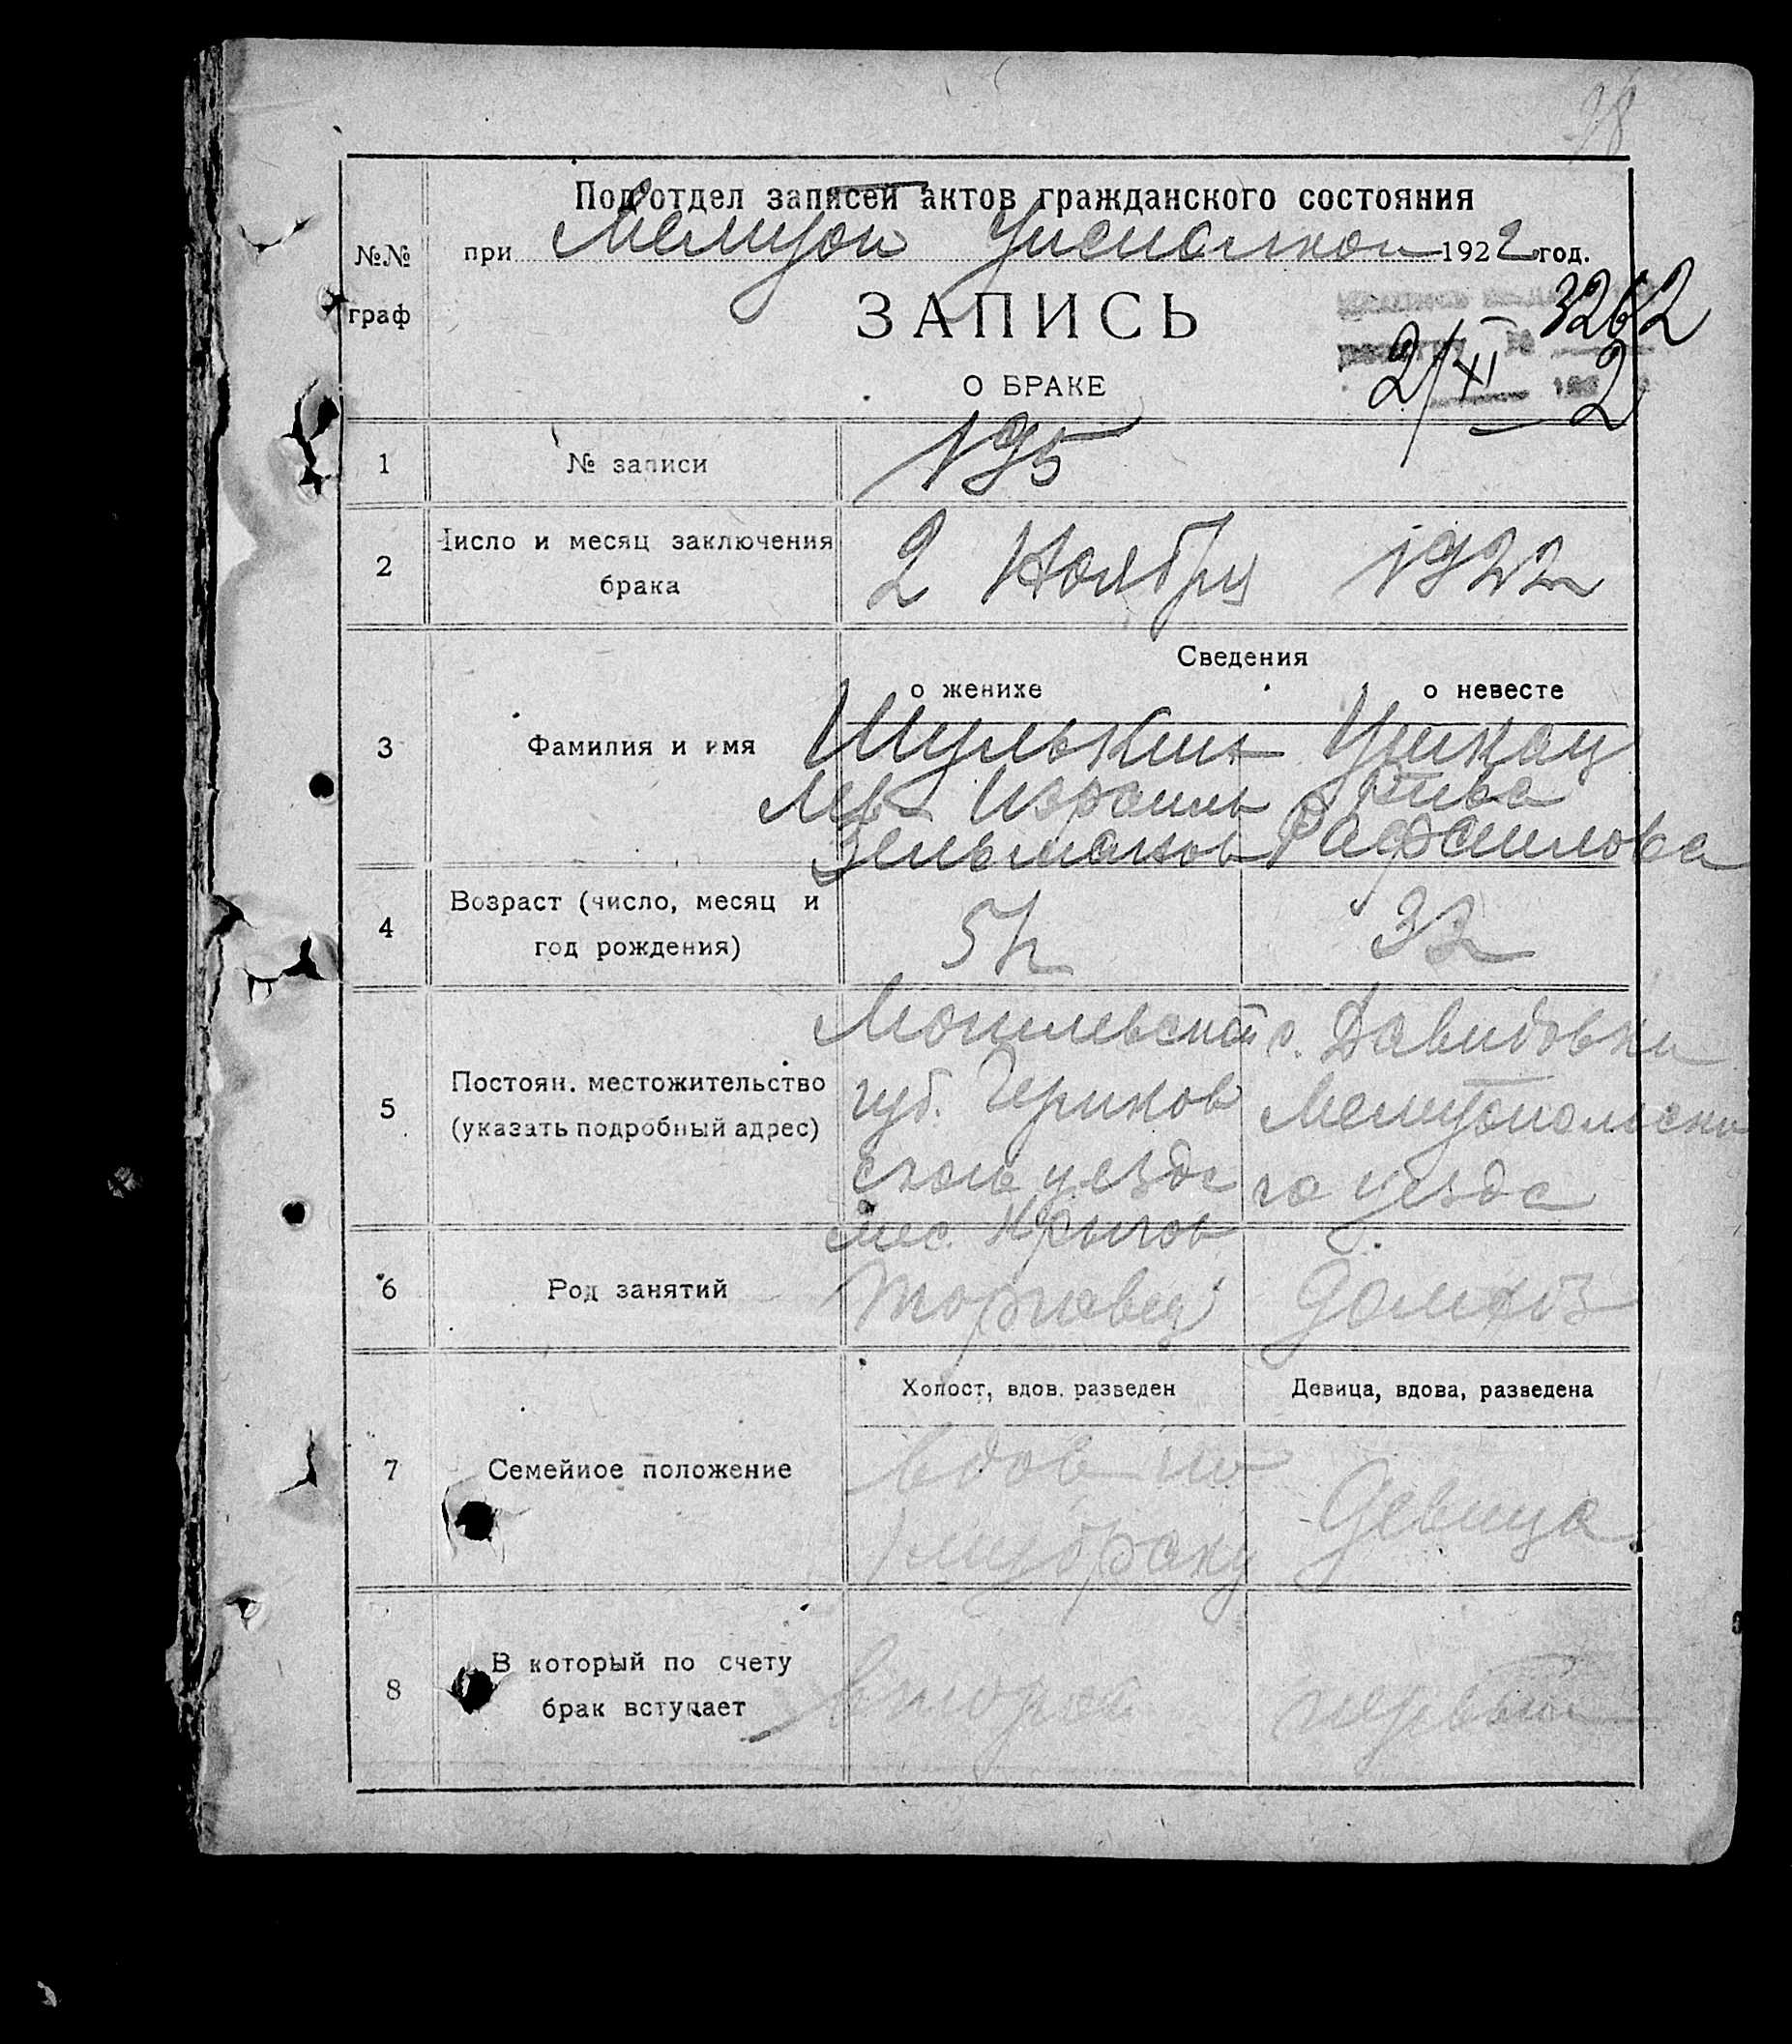 Подотдел записей актов гражданского состояния
№№ граф
при Мелитоп 1922 год.
ЗАПИСЬ
О БРАКЕ
3262
2/XI 1922
1
№ записи
195
2
Число и месяц заключения
брака
2 Ноября 1922
Сведения
о женихе
о невесте
3
Фамилия и имя
Шулькин
Лев Израиль
Зельманов
Рива
Рафаилова
4
Возраст (число, месяц и
год рождения)
32
5
Постоян. местожительство
(указать подробный адрес)
Могилевской
губ. Чериков
ского уезда
мес.
с. Давидовки
Мелитопольско
го уезда
6
Род занятий
Торговец
Домхоз
7
Семейное положение
Холост, вдов. разведен
вдов по
1му браку
Девица, вдова, разведена
Девица
8
В который по счету
брак вступает
второй
первый